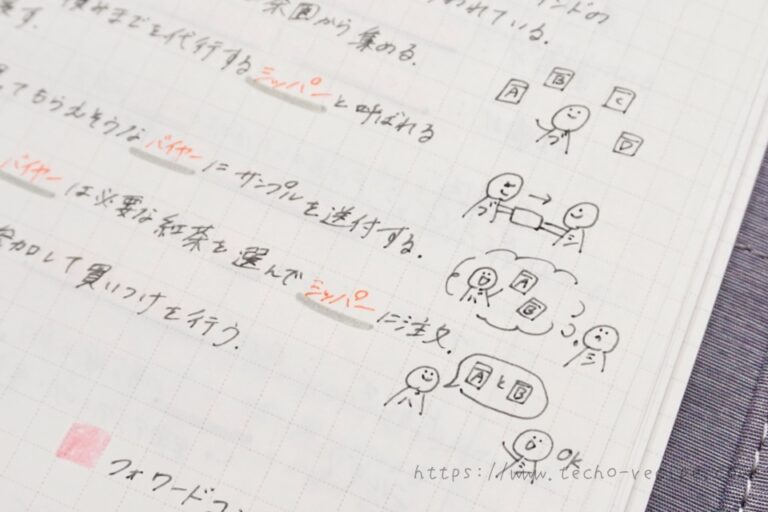 茶園から集める。
代行するシッパーと呼ばれる
してもらえそうなバイヤーにサンプルを送付する。
バイヤーは必要な紅茶を選んでシッパーに注文。
参加して買いつけを行う。
フォワード
A
B
C
D
ブ
ブ → シ
バ A B
シ
バ AとB
OK
https://www.techo-